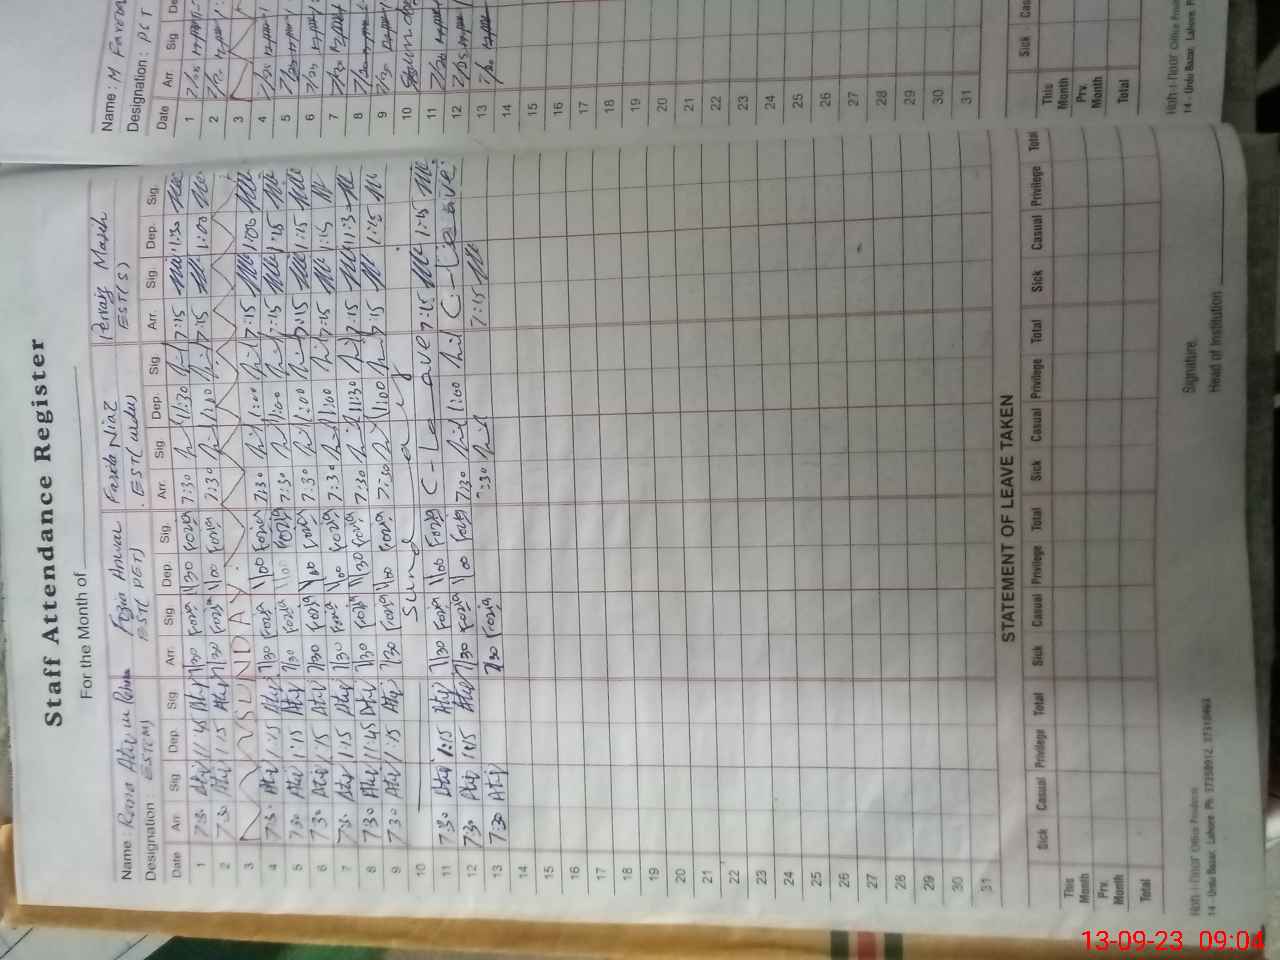 Staff Attendance Register
For the Month of
Name : Rana Atiq ur Rehman Fozia Anwar Farida Niaz Pervaiz Masih
Designation : EST(M) EST( PET) EST( urdu) EST( S)
Date Arr. Sig Dep. Sig Arr. Sig Dep. Sig. Arr. Sig. Dep. Sig Arr. Sig. Dep. Sig.
1 7:30 Atiq 11:45 Atiq 7/30 Fozia 11/30 Fozia 7:30 11:30 7:15 11:30
2 7:30 Atiq 1:15 Atiq 7/30 Fozia 1/00 Fozia 7:30 1:00 7:15 1:00
3 SUNDAY
4 7:30 Atiq 1:15 Atiq 7/30 Fozia 1/00 Fozia 7:30 1:00 7:15 1:00
5 7:30 Atiq 1:15 Atiq 7/30 Fozia 1/00 Fozia 7:30 1:00 7:15 1:15
6 7:30 Atiq 1:15 Atiq 7/30 Fozia 1/00 Fozia 7:30 1:00 7:15 1:15
7 7:30 Atiq 1:15 Atiq 7/30 Fozia 1/00 Fozia 7:30 1:00 7:15 1:15
8 7:30 Atiq 11:45 Atiq 7/30 Fozia 11/30 Fozia 7:30 11:30 7:15 11:30
9 7:30 Atiq 1:15 Atiq 7/30 Fozia 1/00 Fozia 7:30 1:00 7:15 1:15
10 Sunday
11 7:30 Atiq 1:15 Atiq 7/30 Fozia 1/00 Fozia C-Leave 7:15 1:15
12 7:30 Atiq 1:15 Atiq 7/30 Fozia 1/00 Fozia 7:30 1:00 C-Leave
13 7:30 Atiq 7/30 Fozia 7:30 7:15
14
15
16
17
18
19
20
21
22
23
24
25
26
27
28
29
30
31
STATEMENT OF LEAVE TAKEN
Sick Casual Privilege Total Sick Casual Privilege Total Sick Casual Privilege Total Sick Casual Privilege Total
This Month
Prv. Month
Total
Signature.
Head of Institution
14 - Urdu Bazar Lahore Ph: 37350912, 37310463
Name : M
Designation : PCT
Date Arr. Sig
1
2
3
4
5
6
7
8
9
10 Sunday
11
12
13
14
15
16
17
18
19
20
21
22
23
24
25
26
27
28
29
30
31
Sick
This Month
Prv. Month
Total
14 - Urdu Bazar Lahore
13-09-23 09:04